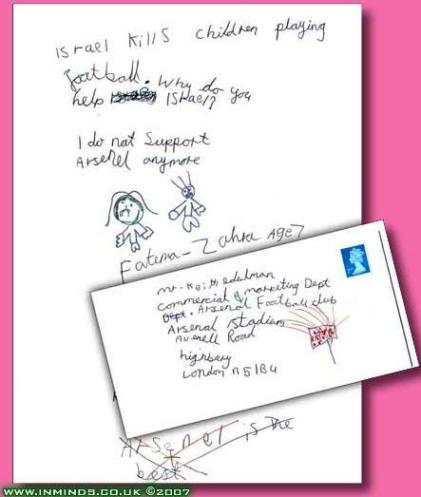 Israel Kills children playing
football. Why do you
help Israel?
I do not Support
Arsenel anymore
Fatema-Zahra Age 7
mr. Keith edelman
commercial & marketing Dept
Dept. Arsenal Football club
Arsenal stadium
Avenell Road
highbury
London N5 1BU
Arsenel is the
best
WWW.INMINDS.CO.UK ©2007